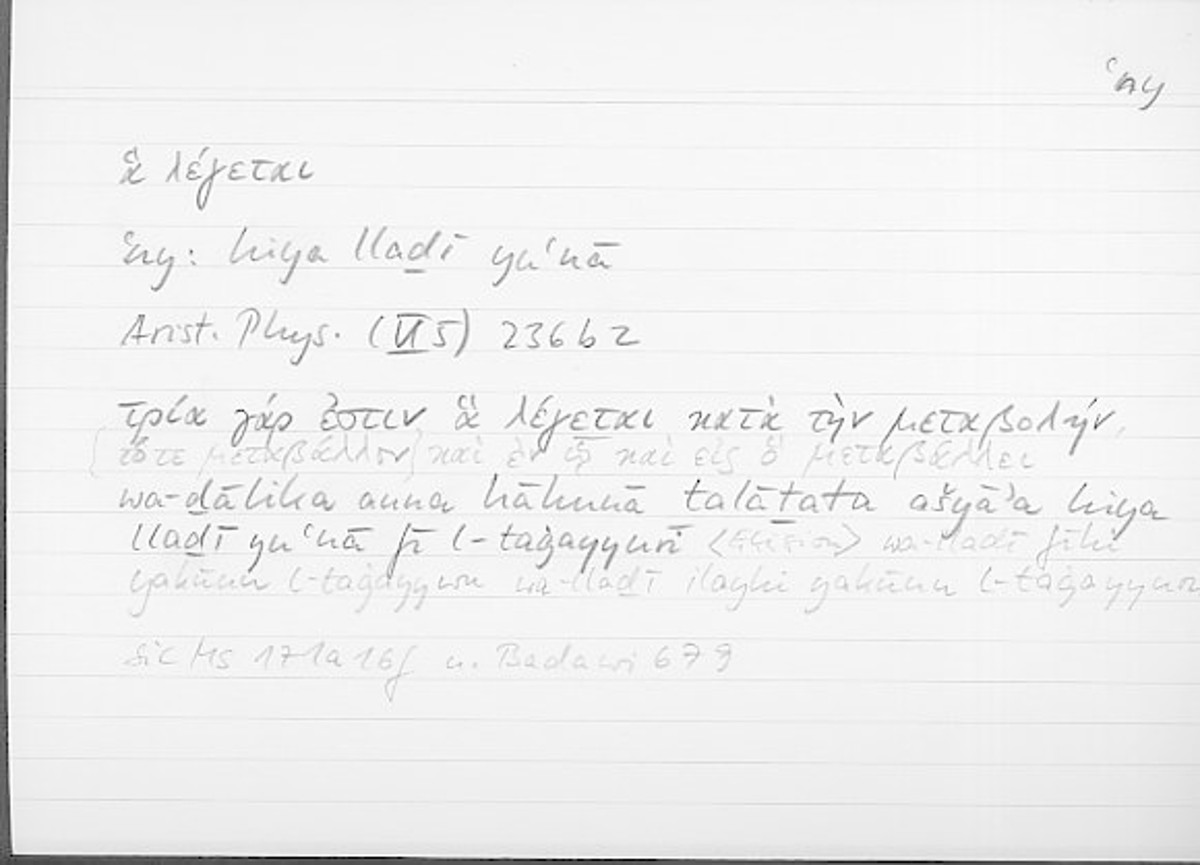 ʿny
ἃ λέγεται
ʿny: hiya lladī yuʿnā
Arist. Phys. (VI 5) 236 b 2
τρία γάρ ἐστιν ἃ λέγεται κατὰ τὴν μεταβολήν,
{τό τε μεταβάλλον} καὶ ἐν ᾧ καὶ εἰς ὃ μεταβάλλει
wa-ḏālika anna hāhunā ṯalāṯata ašyāʾa hiya
llaḏī yuʿnā fī l-taġayyuri wa-llaḏī fīhi
yakūnu l-taġayyuru wa-llaḏī ilayhi yakūnu l-taġayyuru
Sic Ms 171a16f u. Badawi 679